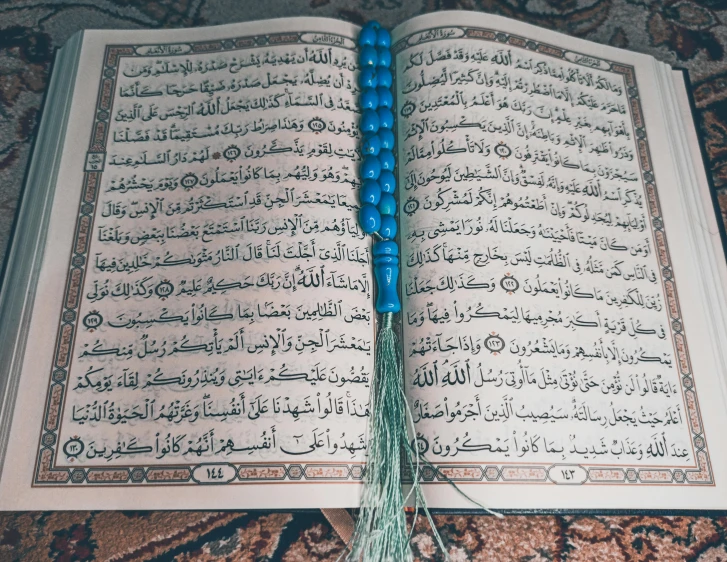 سُورَةُ الأَنْعَامِ الجُزْءُ الثَّامِنُ
وَمَا لَكُمْ أَلَّا تَأْكُلُوا۟ مِمَّا ذُكِرَ ٱسْمُ ٱللَّهِ عَلَيْهِ وَقَدْ فَصَّلَ لَكُم
مَّا حَرَّمَ عَلَيْكُمْ إِلَّا مَا ٱضْطُرِرْتُمْ إِلَيْهِ وَإِنَّ كَثِيرًا لَّيُضِلُّونَ
بِأَهْوَآئِهِم بِغَيْرِ عِلْمٍ إِنَّ رَبَّكَ هُوَ أَعْلَمُ بِٱلْمُعْتَدِينَ ١١٩
وَذَرُوا۟ ظَٰهِرَ ٱلْإِثْمِ وَبَاطِنَهُۥٓ إِنَّ ٱلَّذِينَ يَكْسِبُونَ ٱلْإِثْمَ
سَيُجْزَوْنَ بِمَا كَانُوا۟ يَقْتَرِفُونَ ١٢٠ وَلَا تَأْكُلُوا۟ مِمَّا لَمْ
يُذْكَرِ ٱسْمُ ٱللَّهِ عَلَيْهِ وَإِنَّهُۥ لَفِسْقٌ وَإِنَّ ٱلشَّيَٰطِينَ لَيُوحُونَ إِلَىٰٓ
أَوْلِيَآئِهِمْ لِيُجَٰدِلُوكُمْ وَإِنْ أَطَعْتُمُوهُمْ إِنَّكُمْ لَمُشْرِكُونَ ١٢١
أَوَمَن كَانَ مَيْتًا فَأَحْيَيْنَٰهُ وَجَعَلْنَا لَهُۥ نُورًا يَمْشِى بِهِۦ
فِى ٱلنَّاسِ كَمَن مَّثَلُهُۥ فِى ٱلظُّلُمَٰتِ لَيْسَ بِخَارِجٍ مِّنْهَا كَذَٰلِكَ
زُيِّنَ لِلْكَٰفِرِينَ مَا كَانُوا۟ يَعْمَلُونَ ١٢٢ وَكَذَٰلِكَ جَعَلْنَا
فِى كُلِّ قَرْيَةٍ أَكَٰبِرَ مُجْرِمِيهَا لِيَمْكُرُوا۟ فِيهَا وَمَا
يَمْكُرُونَ إِلَّا بِأَنفُسِهِمْ وَمَا يَشْعُرُونَ ١٢٣ وَإِذَا جَآءَتْهُمْ
ءَايَةٌ قَالُوا۟ لَن نُّؤْمِنَ حَتَّىٰ نُؤْتَىٰ مِثْلَ مَآ أُوتِىَ رُسُلُ ٱللَّهِ ٱللَّهُ
أَعْلَمُ حَيْثُ يَجْعَلُ رِسَالَتَهُۥ سَيُصِيبُ ٱلَّذِينَ أَجْرَمُوا۟ صَغَارٌ
عِندَ ٱللَّهِ وَعَذَابٌ شَدِيدٌۢ بِمَا كَانُوا۟ يَمْكُرُونَ
١٤٣
الجُزْءُ الثَّامِنُ سُورَةُ الأَنْعَامِ
يُرِدِ ٱللَّهُ أَن يَهْدِيَهُۥ يَشْرَحْ صَدْرَهُۥ لِلْإِسْلَٰمِ وَمَن
يُرِدْ أَن يُضِلَّهُۥ يَجْعَلْ صَدْرَهُۥ ضَيِّقًا حَرَجًا كَأَنَّمَا
يَصَّعَّدُ فِى ٱلسَّمَآءِ كَذَٰلِكَ يَجْعَلُ ٱللَّهُ ٱلرِّجْسَ عَلَى ٱلَّذِينَ
يُؤْمِنُونَ ١٢٥ وَهَٰذَا صِرَٰطُ رَبِّكَ مُسْتَقِيمًا قَدْ فَصَّلْنَا
ٱلْءَايَٰتِ لِقَوْمٍ يَذَّكَّرُونَ ١٢٦ لَهُمْ دَارُ ٱلسَّلَٰمِ عِندَ
رَبِّهِمْ وَهُوَ وَلِيُّهُم بِمَا كَانُوا۟ يَعْمَلُونَ ١٢٧ وَيَوْمَ يَحْشُرُهُمْ
جَمِيعًا يَٰمَعْشَرَ ٱلْجِنِّ قَدِ ٱسْتَكْثَرْتُم مِّنَ ٱلْإِنسِ وَقَالَ
أَوْلِيَآؤُهُم مِّنَ ٱلْإِنسِ رَبَّنَا ٱسْتَمْتَعَ بَعْضُنَا بِبَعْضٍ وَبَلَغْنَآ
أَجَلَنَا ٱلَّذِىٓ أَجَّلْتَ لَنَا قَالَ ٱلنَّارُ مَثْوَىٰكُمْ خَٰلِدِينَ فِيهَآ
إِلَّا مَا شَآءَ ٱللَّهُ إِنَّ رَبَّكَ حَكِيمٌ عَلِيمٌ ١٢٨ وَكَذَٰلِكَ نُوَلِّى
بَعْضَ ٱلظَّٰلِمِينَ بَعْضًۢا بِمَا كَانُوا۟ يَكْسِبُونَ ١٢٩
يَٰمَعْشَرَ ٱلْجِنِّ وَٱلْإِنسِ أَلَمْ يَأْتِكُمْ رُسُلٌ مِّنكُمْ
يَقُصُّونَ عَلَيْكُمْ ءَايَٰتِى وَيُنذِرُونَكُمْ لِقَآءَ يَوْمِكُمْ
هَٰذَا قَالُوا۟ شَهِدْنَا عَلَىٰٓ أَنفُسِنَا وَغَرَّتْهُمُ ٱلْحَيَوٰةُ ٱلدُّنْيَا
وَشَهِدُوا۟ عَلَىٰٓ أَنفُسِهِمْ أَنَّهُمْ كَانُوا۟ كَٰفِرِينَ ١٣٠
١٤٤